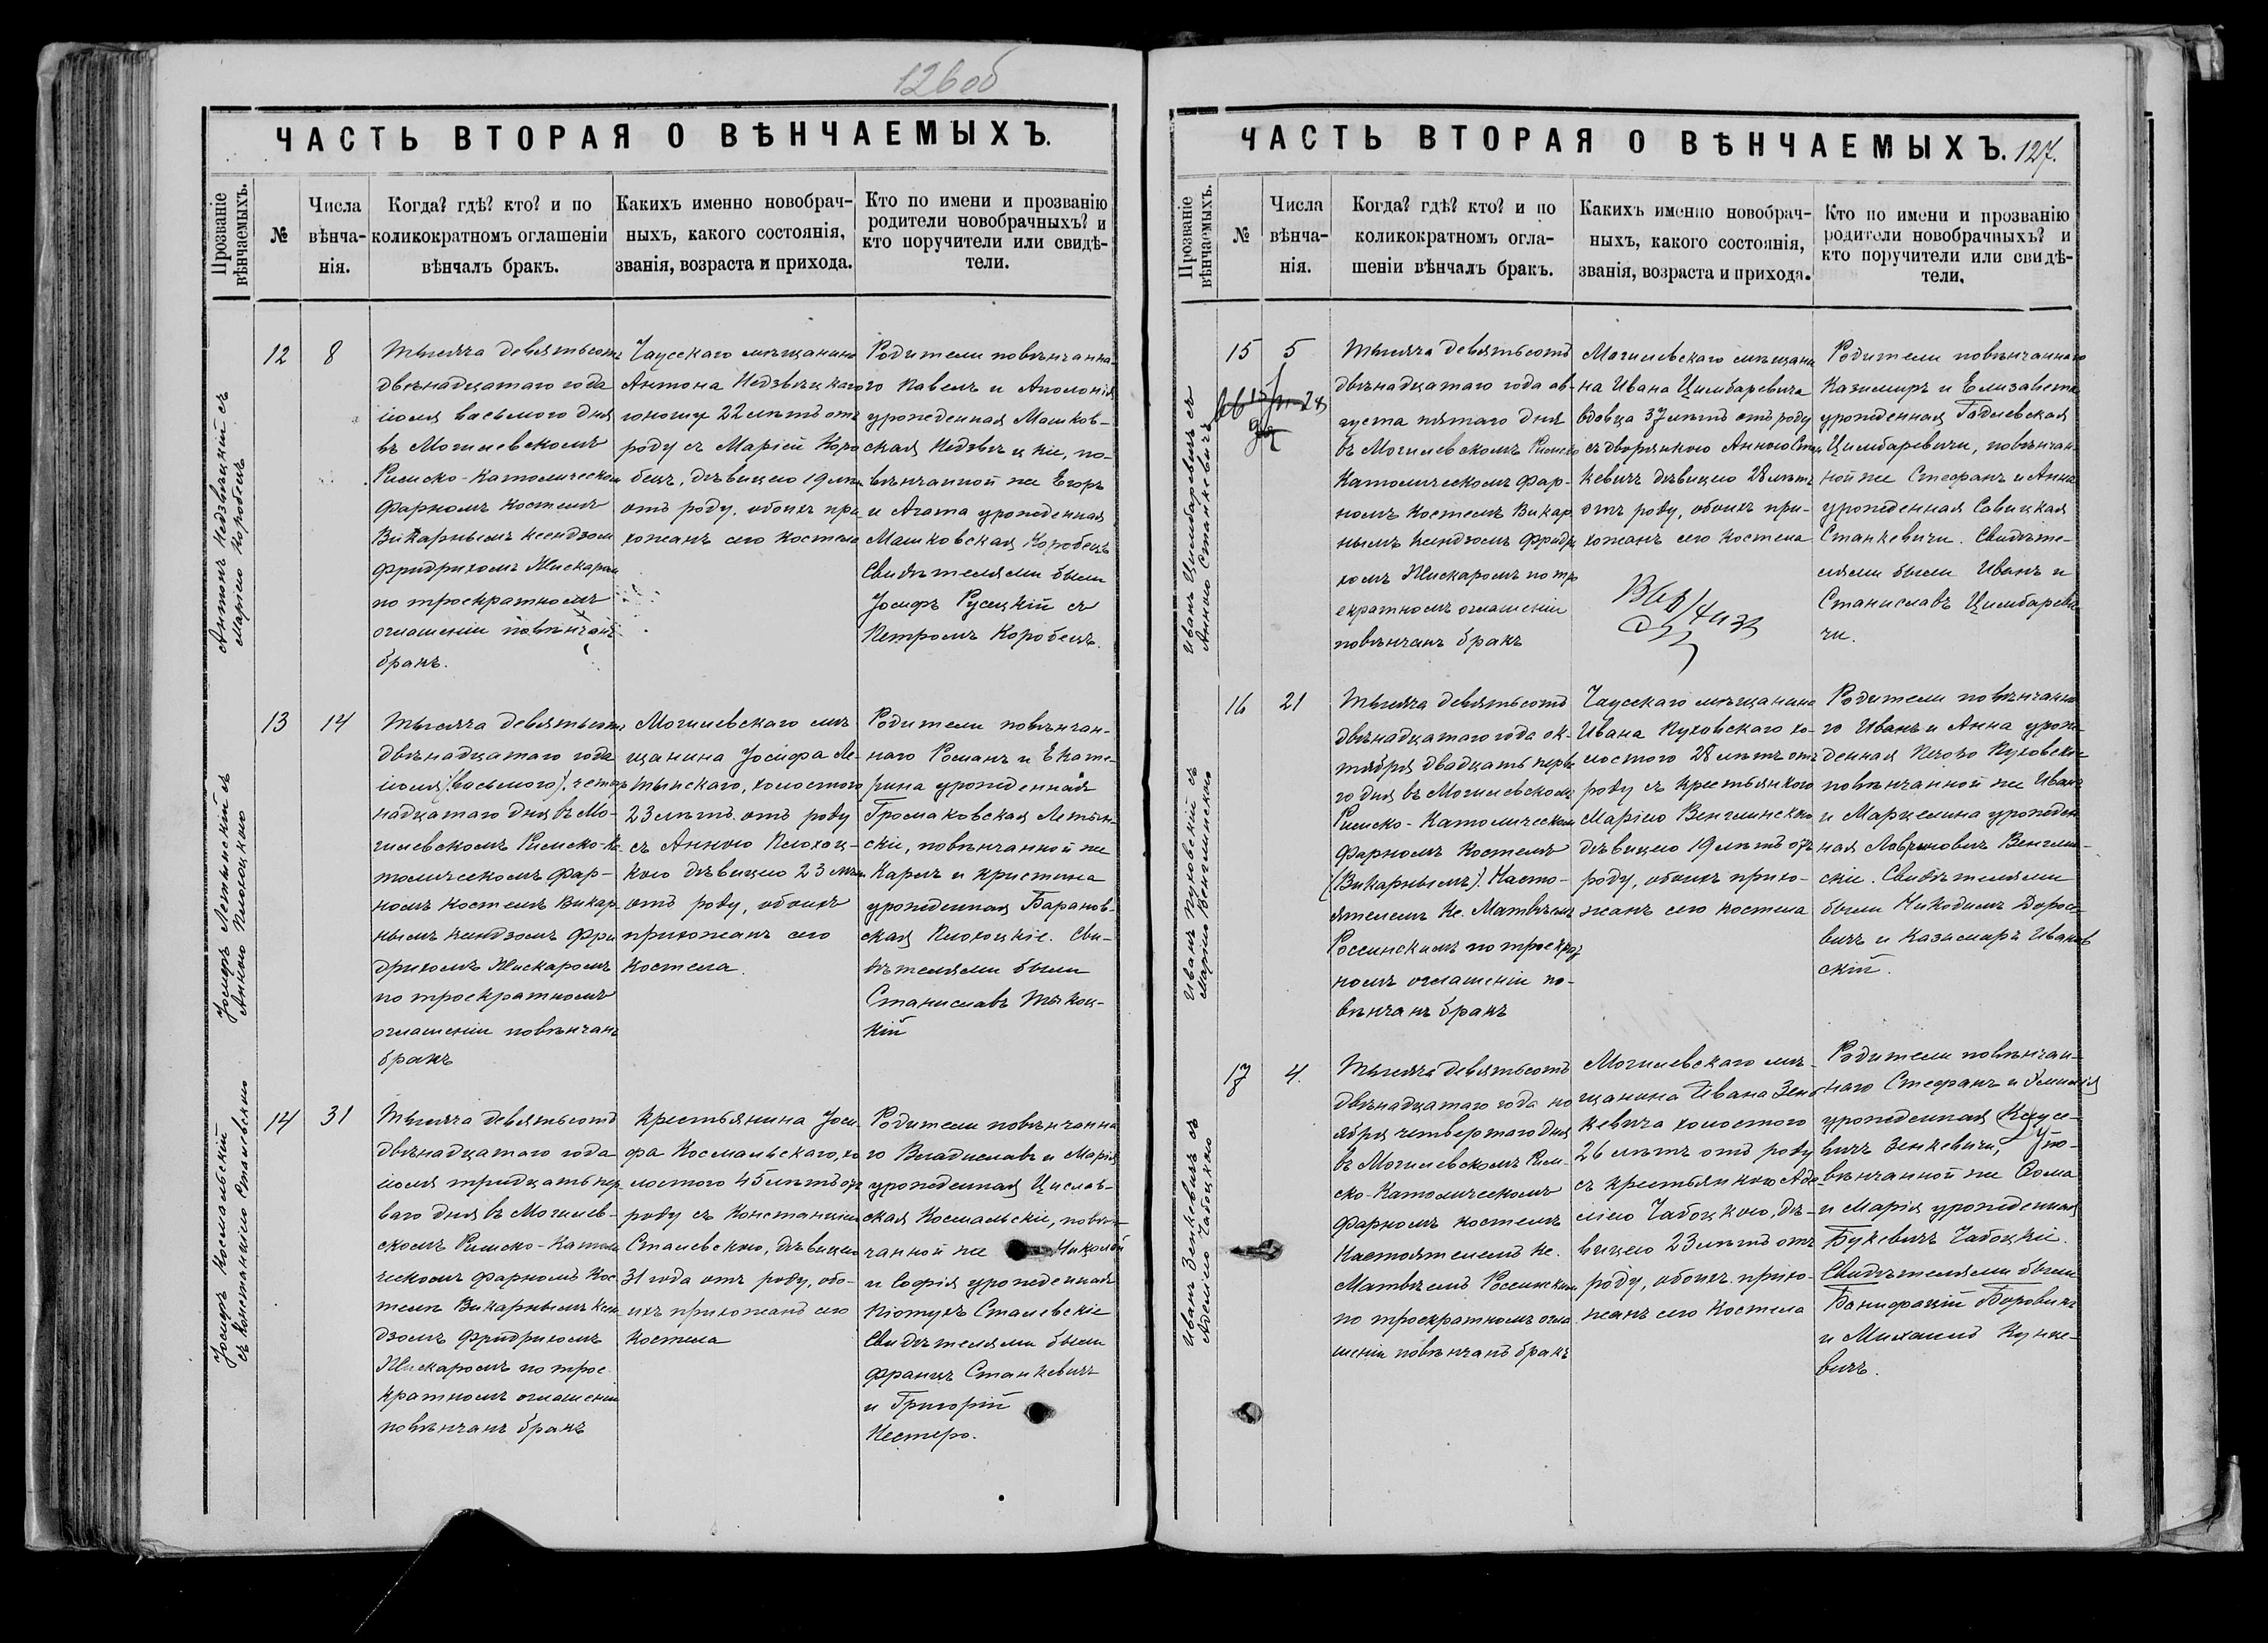 126об
ЧАСТЬ ВТОРАЯ О ВѢНЧАЕМЫХЪ.
Прозваніе
вѣнчаемыхъ.
№
Числа
вѣнча-
нія.
Когда? гдѣ? кто? и по
коликократномъ оглашеніи
вѣнчалъ бракъ.
Какихъ именно новобрач-
ныхъ, какого состоянія,
званія, возраста и прихода.
Кто по имени и прозванію
родители новобрачныхъ? и
кто поручители или свидѣ-
тели.
Антонъ Недзвѣцкій съ
Маріею Коробецъ
12
8
Тысяча девятьсотъ
двѣнадцатаго года
іюля васьмого дня
въ Могилевскомъ
Римско-Католическом
Фарномъ Костелѣ
Викарнымъ Ксендзом
Фридрихомъ Жискаром
по троекратномъ
оглашеніи повѣнчанъ
бракъ.
Чаусскаго мѣщанина
Антона Недзвѣцкаго
юношу 22 лѣтъ отъ
роду съ Маріей Коро
бецъ, дѣвицею 19 лѣт
отъ роду, обоихъ при
хожанъ сего Костела
Родители повѣнчанна
го Павелъ и Аполонія
урожденная Машков-
ская Недзвѣцкіе, по-
вѣнчанной же Егоръ
и Агата урожденная
Машковская Коробецъ
Свидѣтелями были
Іосифъ Русецкій съ
Петромъ Коробецъ.
Іосифъ Летынскій съ
Анною Плохоцкою
13
14
Тысяча девятьсотъ
двѣнадцатаго года
іюля (васьмого) четыр
надцатаго дня въ Мо-
гилевскомъ Римско-Ка
толическомъ Фар-
номъ Костелѣ Викар-
нымъ Ксендзомъ Фри
дрихомъ Жискаромъ
по троекратномъ
оглашеніи повѣнчанъ
бракъ
Могилевскаго мѣ
щанина Іосифа Ле-
тынскаго, холостого
23 лѣтъ отъ роду
съ Анною Плохоц-
кою дѣвицею 23 лѣт
отъ роду, обоихъ
прихожанъ сего
Костела.
Родители повѣнчан-
наго Романъ и Екате-
рина урожденная
Громаковская Летын-
скіе, повѣнчанной же
Карлъ и Кристина
урожденная Баранов-
ская Плохоцкіе. Сви-
дѣтелями были
Станиславъ
кій
Іосифъ Космальскій
съ Констанціею Сталевскою
14
31
Тысяча девятьсотъ
двѣнадцатаго года
іюля тридцать пер
ваго дня въ Могилев-
скомъ Римско-Католи
ческомъ Фарномъ Кос
телѣ Викарнымъ Ксен
дзомъ Фридрихомъ
Жискаромъ по трое
кратномъ оглашеніи
повѣнчанъ бракъ
Крестьянина Іоси
фа Космальскаго, хо
лостого 45 лѣтъ отъ
роду съ Констанціею
Сталевскою, дѣвицею
31 года отъ роду, обо-
ихъ прихожанъ сего
Костела
Родители повѣнчанна
го Владиславъ и Марія
урожденная Цислов-
ская Космальскіе, повѣн
чанной же Николай
и Софія урожденная
Піотухъ Сталевскіе
Свидѣтелями были
Францъ Станкевичъ
и Григорій
Нестеро.
ЧАСТЬ ВТОРАЯ О ВѢНЧАЕМЫХЪ.
127.
Прозваніе
вѣнчаемыхъ.
№
Числа
вѣнча-
нія.
Когда? гдѣ? кто? и по
коликократномъ огла-
шеніи вѣнчалъ бракъ.
Какихъ именно новобрач-
ныхъ, какого состоянія,
званія, возраста и прихода.
Кто по имени и прозванію
родители новобрачныхъ? и
кто поручители или свидѣ-
тели.
Иванъ Цимбаревичъ съ
Анною Станкевичъ
15
5
Тысяча девятьсотъ
двѣнадцатаго года ав-
густа пятаго дня
въ Могилевскомъ Римско
Католическомъ Фар-
номъ Костелѣ Викар
нымъ Ксендзомъ Фридри
хомъ Жискаромъ по тр
екратномъ оглашеніи
повѣнчанъ бракъ
Могилевскаго мѣщани
на Ивана Цимбаревича
вдовца 37 лѣтъ отъ роду
съ дворянкою Анною Стан
кевичъ дѣвицею 28 лѣтъ
отъ роду, обоихъ при-
хожанъ сего Костела
Родители повѣнчаннаго
Казимиръ и Елизавета
урожденная Годлевская
Цимбаревичи, повѣнчан-
ной же Стефанъ и Анна
урожденная Савицкая
Станкевичи. Свидѣте-
лями были Иванъ и
Станиславъ Цимбареви
чи.
Иванъ Пуховскій съ
Маріею Венглинскою
16
21
Тысяча девятьсотъ
двѣнадцатаго года ок-
тября двадцать перв
го дня въ Могилевском
Римско-Католическом
Фарномъ Костелѣ
(Викарнымъ). Насто-
ятелемъ Кс. Матвѣемъ
Россинскимъ по троекрат
номъ оглашеніи по-
вѣнчанъ бракъ
Чаусскаго мѣщанина
Ивана Пуховскаго хо-
лостого 28 лѣтъ отъ
роду съ крестьянкою
Маріею Венглинскою
дѣвицею 19 лѣтъ отъ
роду, обоихъ прихо-
жанъ сего костела
Родители повѣнчанна
го Иванъ и Анна урож-
денная Пуховскіе
повѣнчанной же Иванъ
и Марцелина урожден
ная Лавриновичъ Венглин-
скіе. Свидѣтелями
были Никодимъ Дорос
вичъ и Казимиръ Иванов
скій.
Иванъ Зенкевичъ съ
Аделіею Чабоцкою
17
4.
Тысяча девятьсотъ
двѣнадцатаго года но
ября четвертаго дня
въ Могилевскомъ Рим-
ско-Католическомъ
Фарномъ костелѣ
Настоятелемъ Кс.
Матвѣемъ Россинским
по троекратномъ огла
шеніи повѣнчанъ бракъ
Могилевскаго мѣ-
щанина Ивана Зен-
кевича холостого
26 лѣтъ отъ роду
съ крестьянкою Аде-
ліею Чабоцкою, дѣ-
вицею 23 лѣтъ отъ
роду, обоихъ прихо-
жанъ сего Костела
Родители повѣнчан-
наго Стефанъ и
урожденная
вичъ Зенкевичи, по-
вѣнчанной же Ѳома
и Марія урожденная
Букевичъ Чабоцкіе.
Свидѣтелями были
Бонифацій Боровикъ
и Михаилъ Кунце-
вичъ.